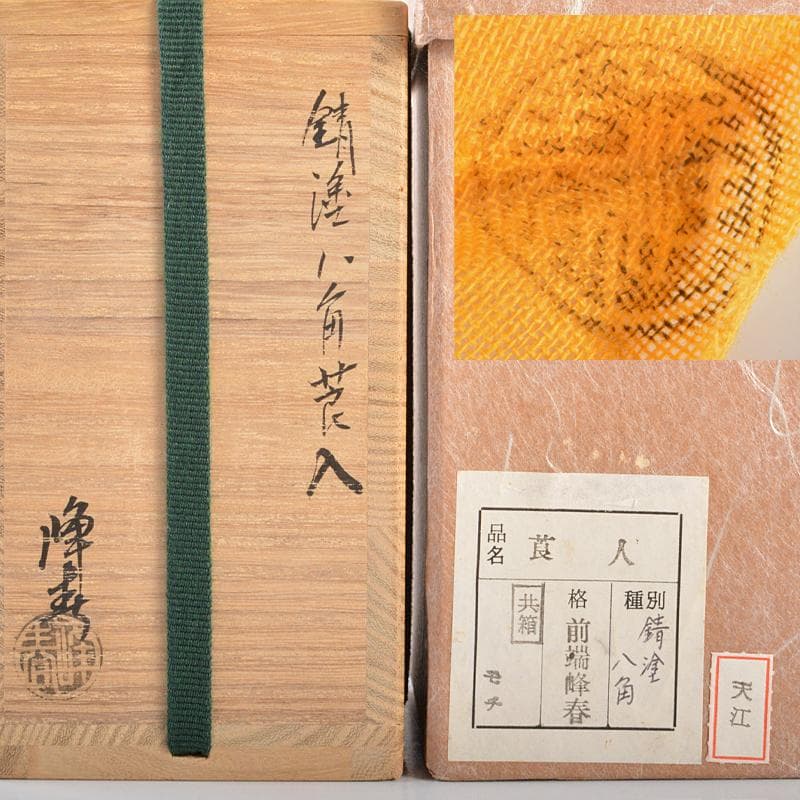 錆塗八角茛入
峰春
品名
茛入
種別
錆塗
八角
格
前端峰春
共箱
モチ
天江